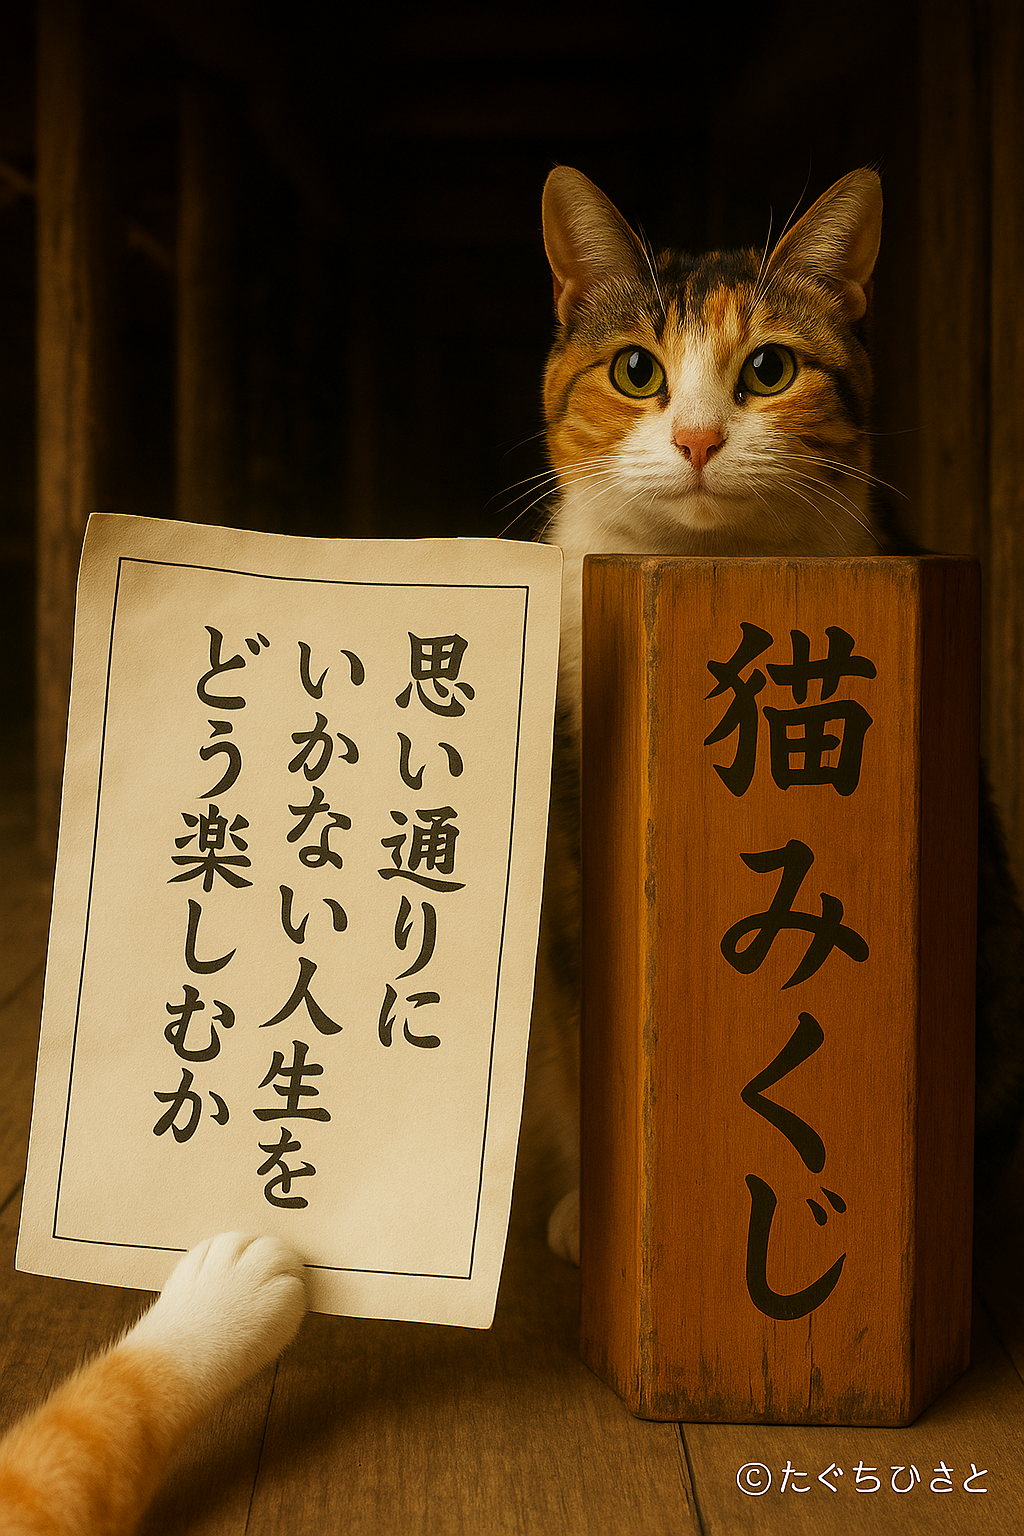 思い通りに
いかない人生を
どう楽しむか
猫みくじ
©たぐちひさと